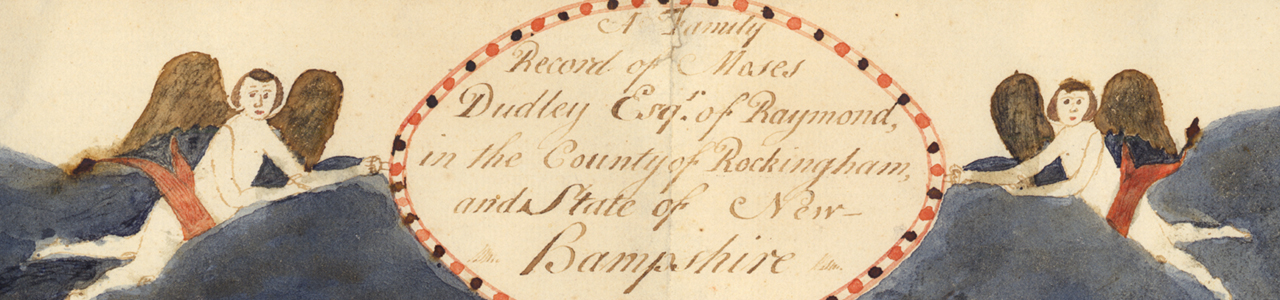 A Family
Record of Moses
Dudley Esqr. of Raymond,
in the County of Rockingham,
and State of New-
Hampshire